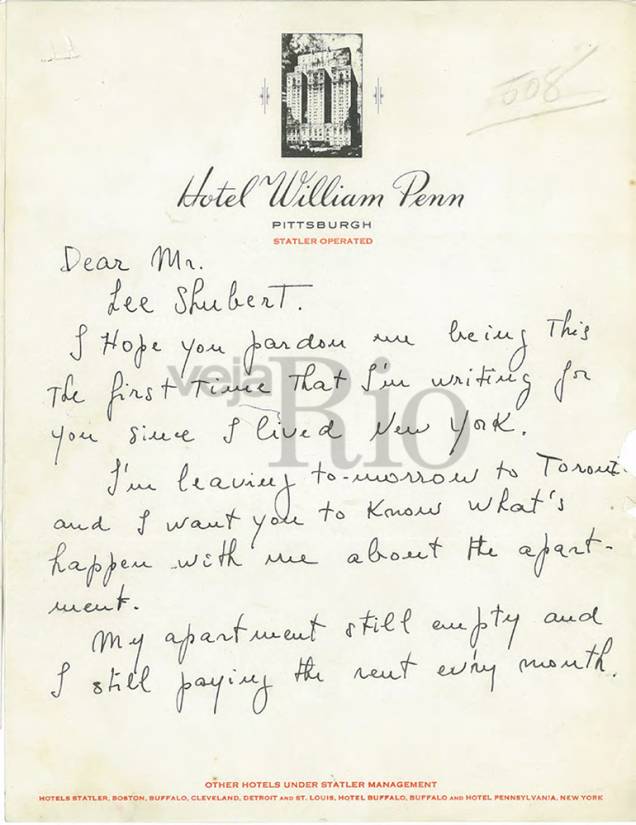 508
Hotel William Penn
PITTSBURGH
STATLER OPERATED
Dear Mr.
Lee Shubert.
I Hope you pardon me being This
the first Time That I'm writing for
you since I lived New York.
I'm leaving to-morrow to Toront
and I want you to Know what's
happen with me about the apart-
ment.
My apartment still empty and
I still paying the rent ev'ry month.
veja
Rio
OTHER HOTELS UNDER STATLER MANAGEMENT
HOTELS STATLER, BOSTON, BUFFALO, CLEVELAND, DETROIT AND ST. LOUIS, HOTEL BUFFALO, BUFFALO AND HOTEL PENNSYLVANIA, NEW YORK